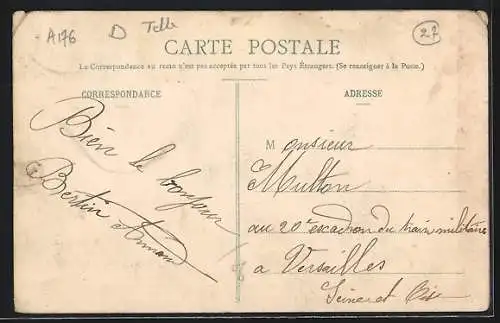 A176
D
Telle
27
CARTE POSTALE
La Correspondance au recto n'est pas acceptée par tous les Pays Étrangers. (Se renseigner à la Poste.)
CORRESPONDANCE
Bien le bonjour
Bertin Armand
ADRESSE
Monsieur
Multon
au 20e escadron du train militaire
a Versailles
Seine et Oise